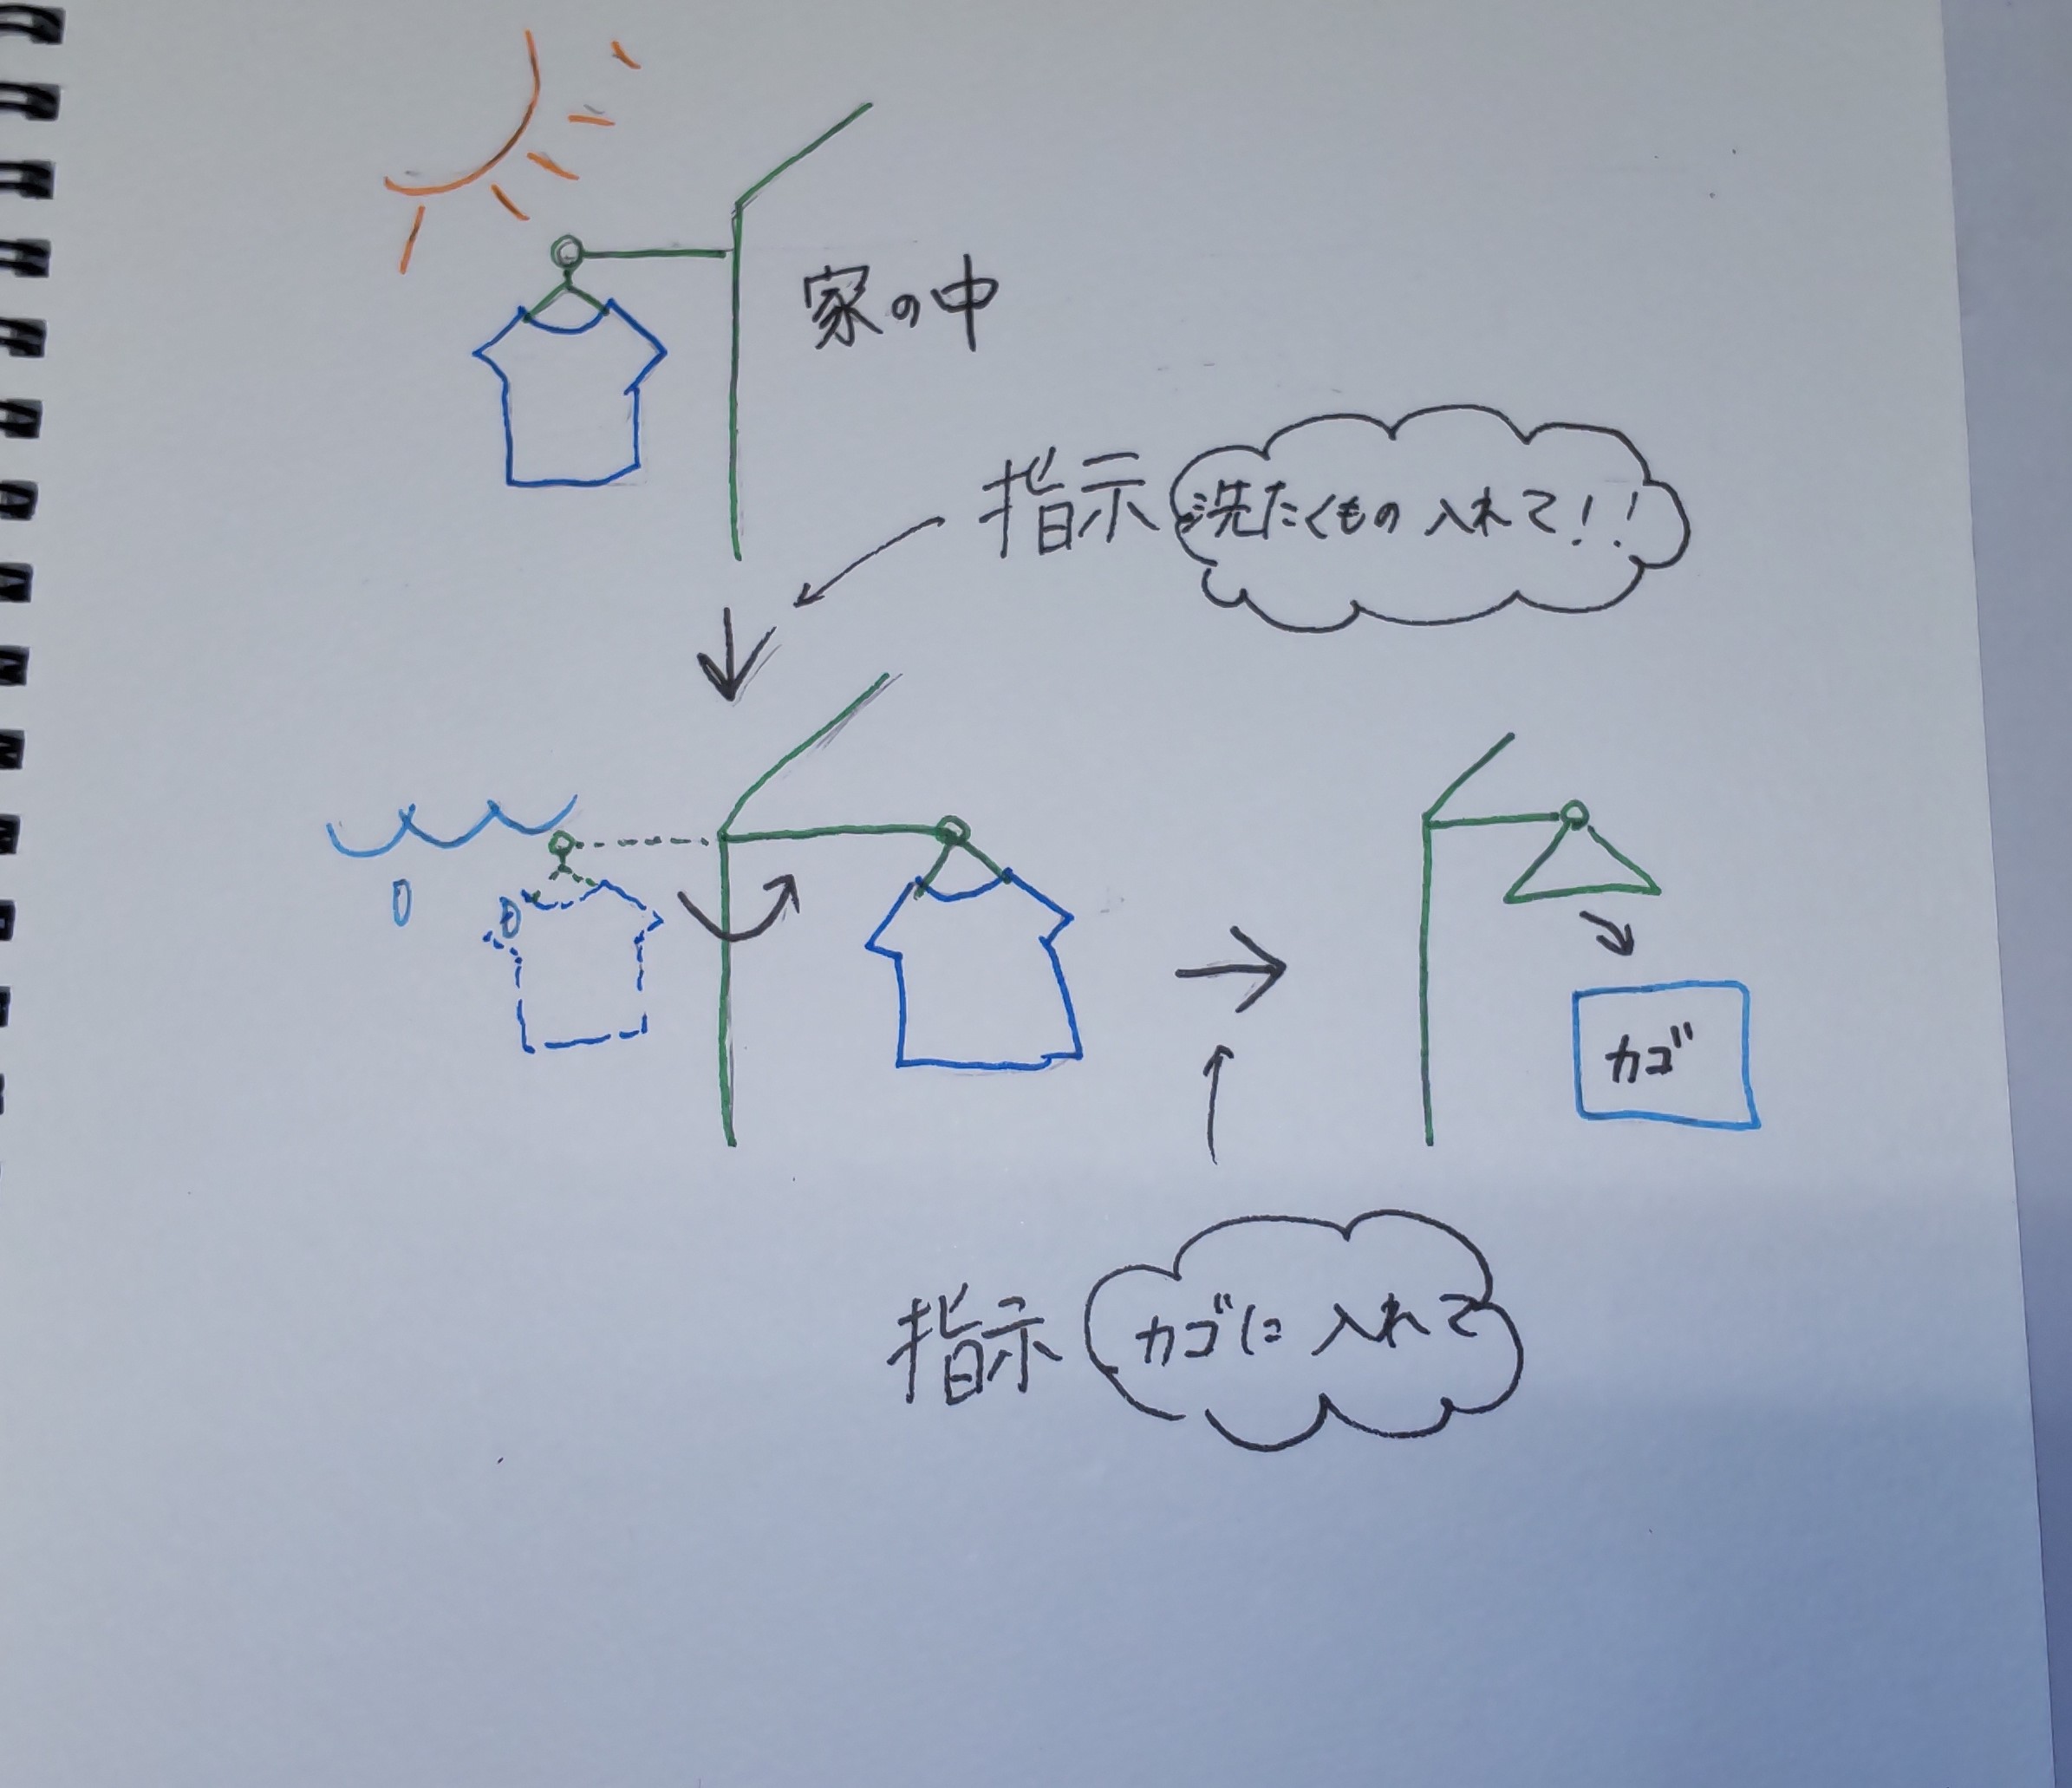 家の中
指示 洗たくもの 入れて!!
カゴ
指示 カゴに 入れて